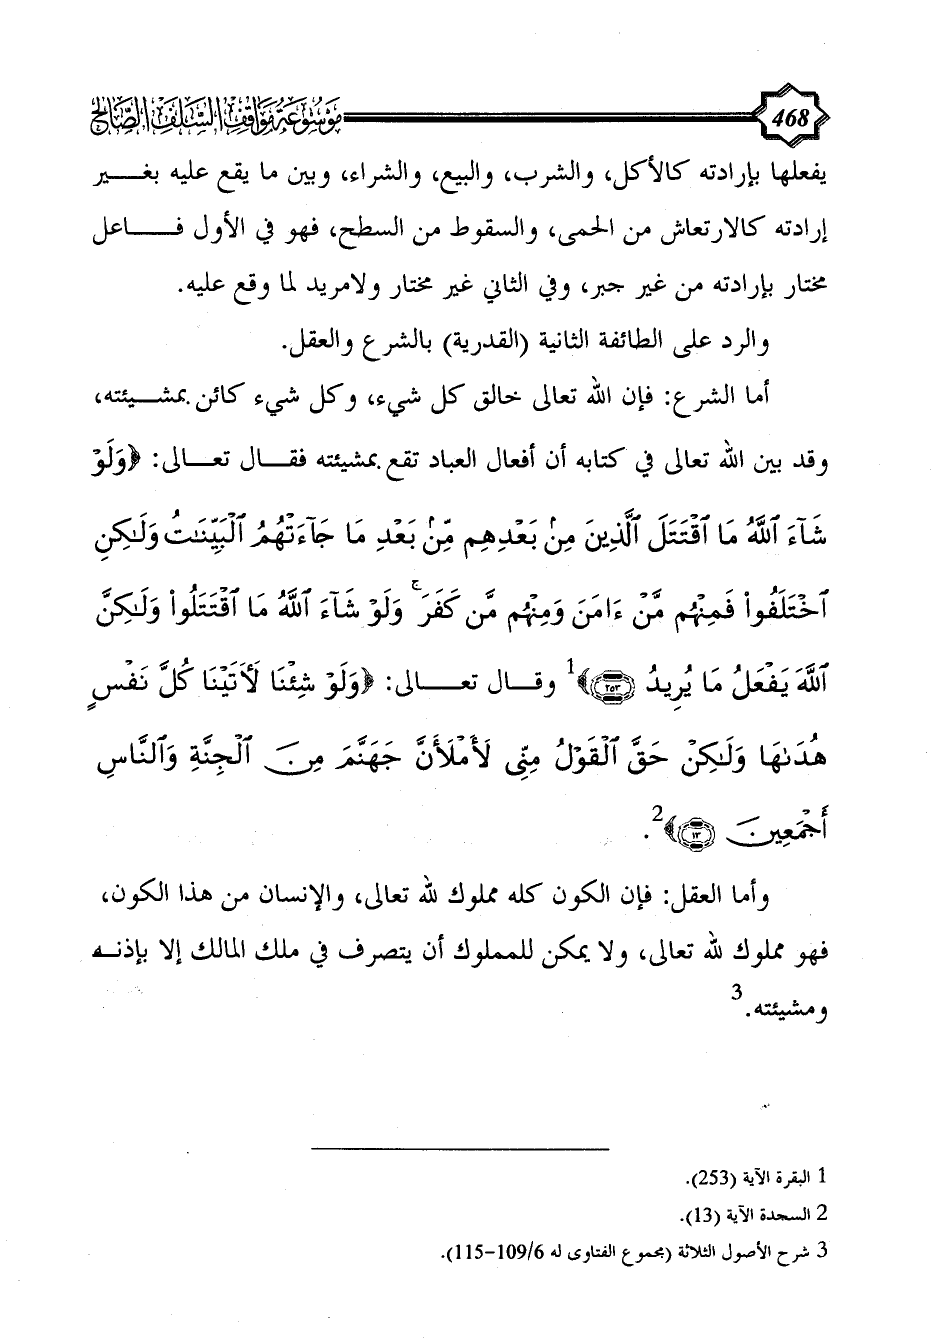 468 موسوعة مواقف السلف الصالح
يفعلها بإرادته كالأكل، والشرب، والبيع، والشراء، وبين ما يقع عليه بغير
إرادته كالارتعاش من الحمى، والسقوط من السطح، فهو في الأول فاعل
مختار بإرادته من غير جبر، وفي الثاني غير مختار ولامريد لما وقع عليه.
والرد على الطائفة الثانية (القدرية) بالشرع والعقل.
أما الشرع: فإن الله تعالى خالق كل شيء، وكل شيء كائن بمشيئته،
وقد بين الله تعالى في كتابه أن أفعال العباد تقع بمشيئته فقال تعالى: ﴿وَلَوْ
شَآءَ ٱللَّهُ مَا ٱقْتَتَلَ ٱلَّذِينَ مِنۢ بَعْدِهِم مِّنۢ بَعْدِ مَا جَآءَتْهُمُ ٱلْبَيِّنَٰتُ وَلَٰكِنِ
ٱخْتَلَفُواْ فَمِنْهُم مَّنْ ءَامَنَ وَمِنْهُم مَّن كَفَرَ ۚ وَلَوْ شَآءَ ٱللَّهُ مَا ٱقْتَتَلُواْ وَلَٰكِنَّ
ٱللَّهَ يَفْعَلُ مَا يُرِيدُ ٢٥٣﴾1 وقال تعالى: ﴿وَلَوْ شِئْنَا لَأَتَيْنَا كُلَّ نَفْسٍ
هُدَىٰهَا وَلَٰكِنْ حَقَّ ٱلْقَوْلُ مِنِّى لَأَمْلَأَنَّ جَهَنَّمَ مِنَ ٱلْجِنَّةِ وَٱلنَّاسِ
أَجْمَعِينَ ١٣﴾2.
وأما العقل: فإن الكون كله مملوك لله تعالى، والإنسان من هذا الكون،
فهو مملوك لله تعالى، ولا يمكن للمملوك أن يتصرف في ملك المالك إلا بإذنه
ومشيئته.3
1 البقرة الآية (253).
2 السجدة الآية (13).
3 شرح الأصول الثلاثة (مجموع الفتاوى له 109/6-115).